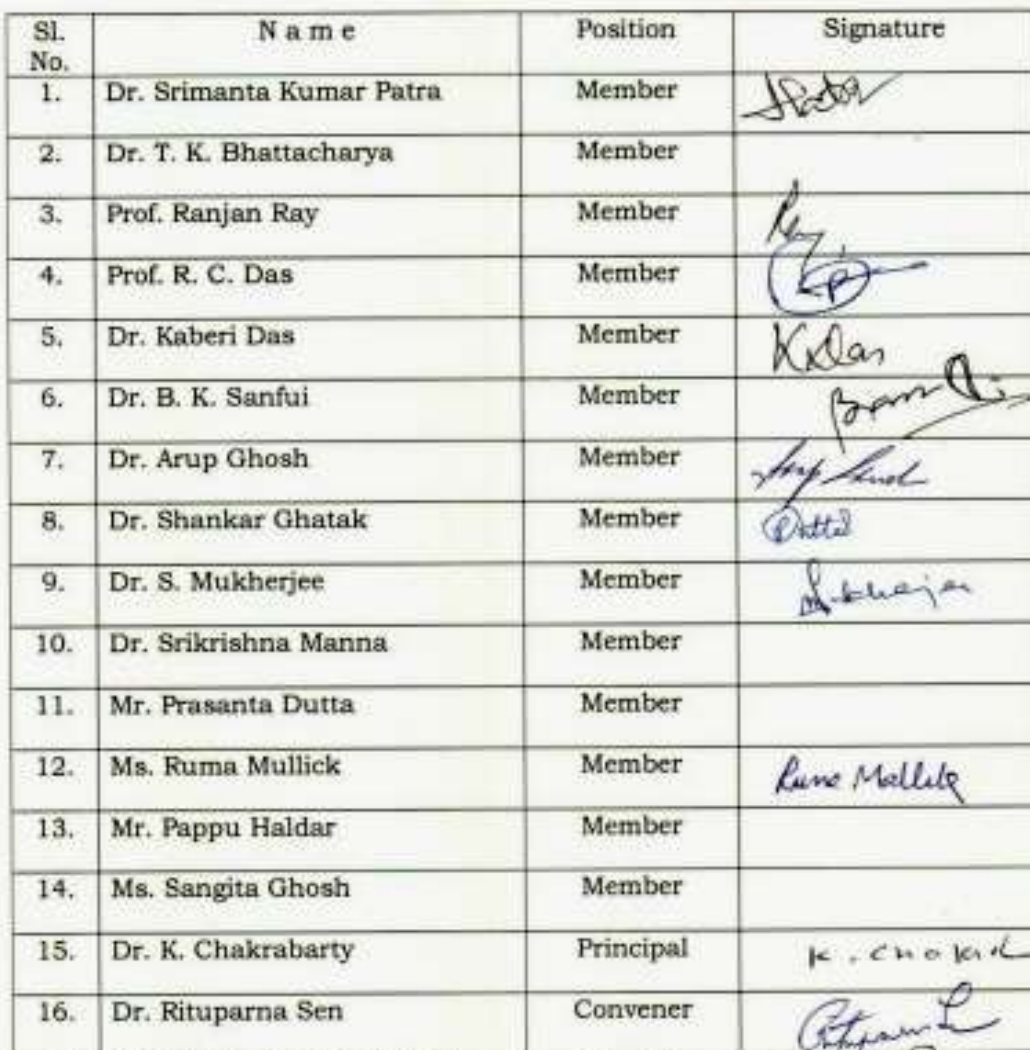 Sl. No. Name Position Signature
1. Dr. Srimanta Kumar Patra Member
2. Dr. T. K. Bhattacharya Member
3. Prof. Ranjan Ray Member Ray
4. Prof. R. C. Das Member
5. Dr. Kaberi Das Member K. Das
6. Dr. B. K. Sanfui Member
7. Dr. Arup Ghosh Member
8. Dr. Shankar Ghatak Member
9. Dr. S. Mukherjee Member
10. Dr. Srikrishna Manna Member
11. Mr. Prasanta Dutta Member
12. Ms. Ruma Mullick Member Ruma Mallick
13. Mr. Pappu Haldar Member
14. Ms. Sangita Ghosh Member
15. Dr. K. Chakrabarty Principal
16. Dr. Rituparna Sen Convener